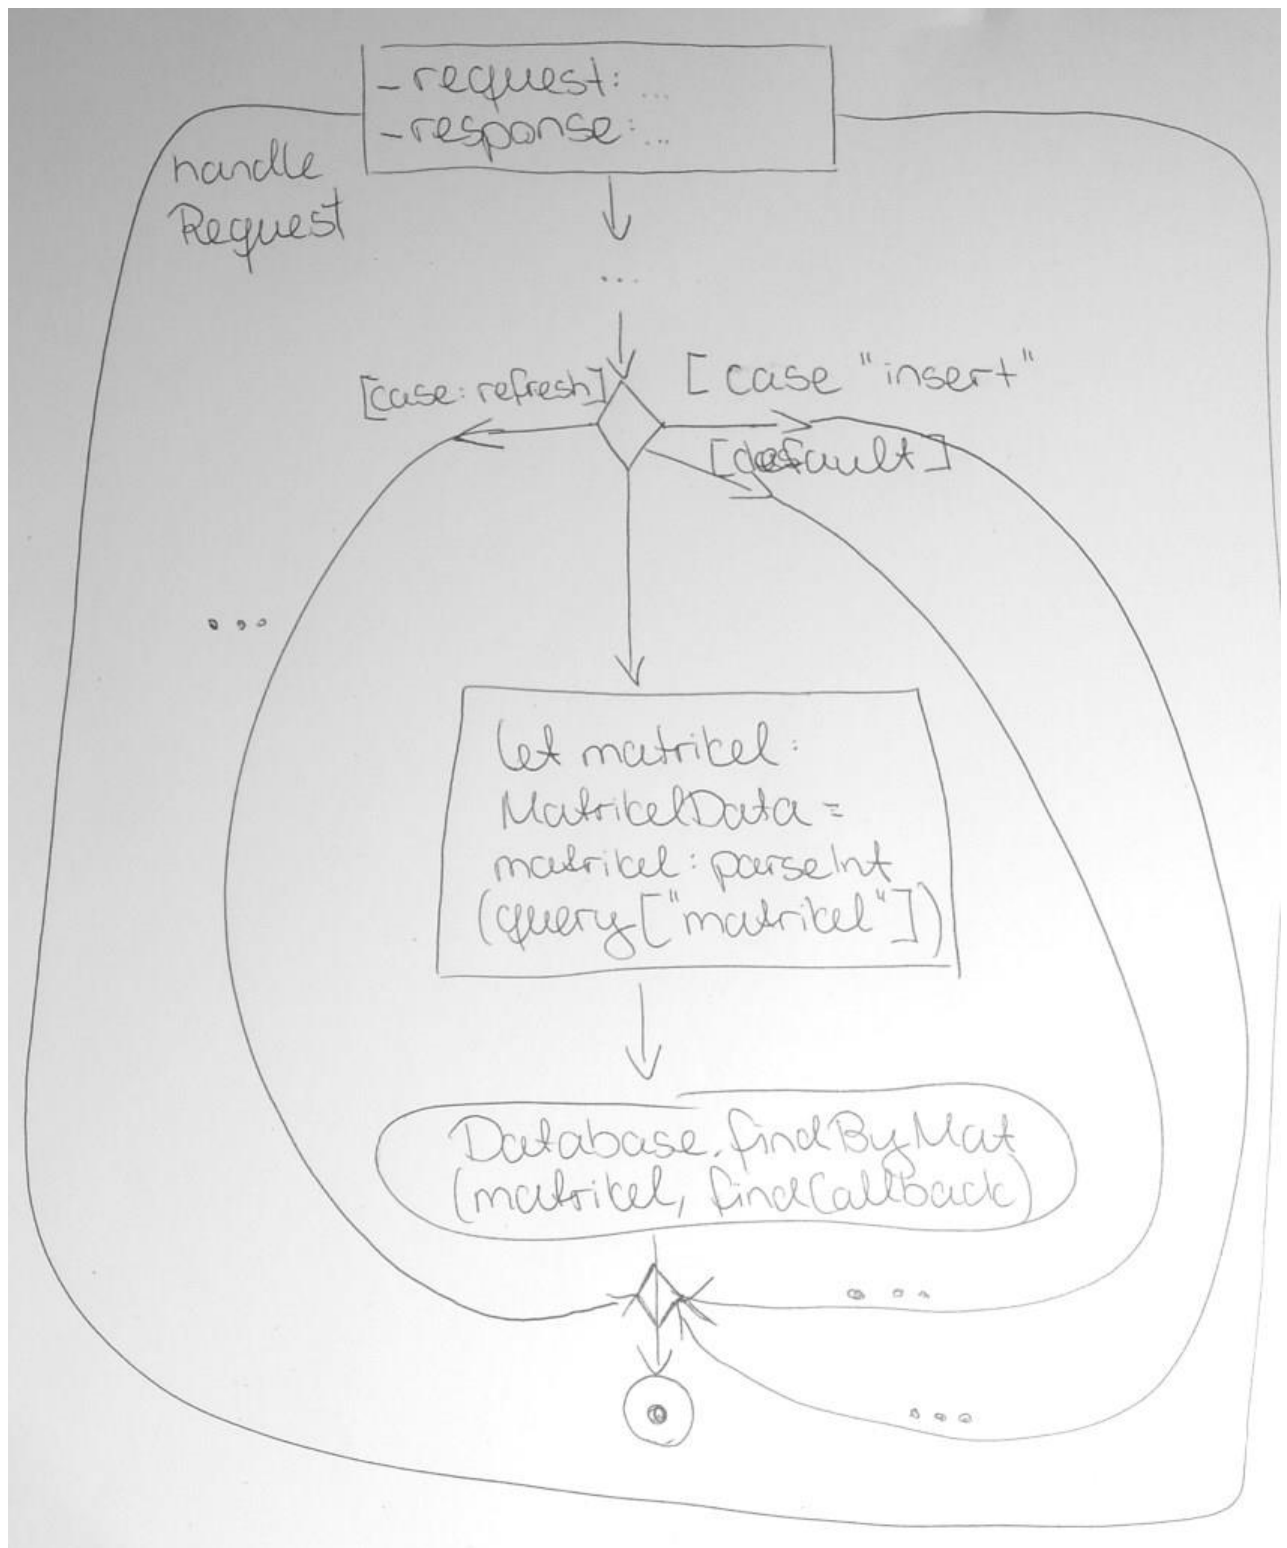 - request: ...
- response: ...
handle
Request
...
[case: refresh]
[case "insert"
[default]
...
let matrikel:
MatrikelData =
matrikel: parseInt
(query["matrikel"])
Database.findByMat
(matrikel, findCallback)
...
...